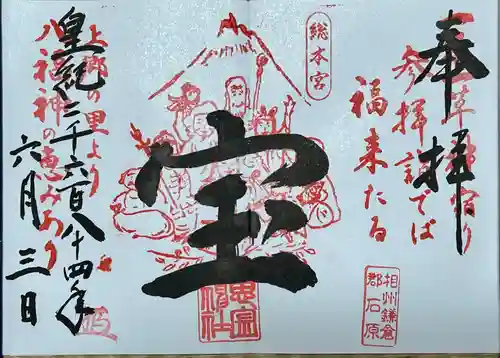 奉拝
参拝詣でば
福来たる
相州鎌倉
郡石原
総本宮
宝
思金
神社
上郷の里より
八福神の恵みあり
皇紀二千六百八十四年
六月三日